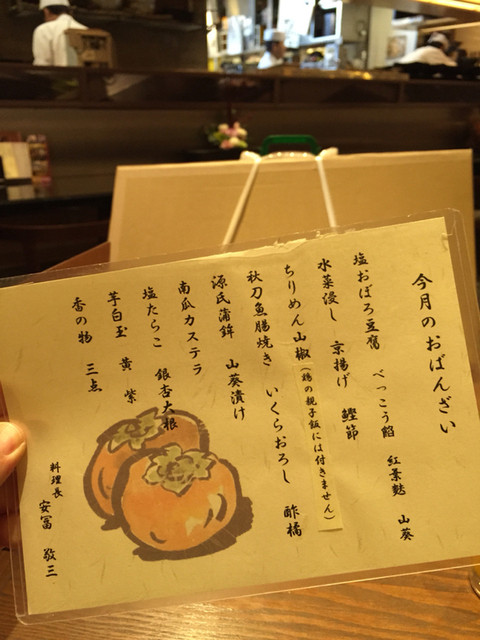 今月のおばんざい
塩おぼろ豆腐 べっこう餡 紅葉麩 山葵
水菜浸し 京揚げ 鰹節
ちりめん山椒（鶏の親子飯には付きません）
秋刀魚腸焼き いくらおろし 酢橘
源氏蒲鉾 山葵漬け
南瓜カステラ
塩たらこ 銀杏大根
芋白玉 黄 紫
香の物 三点
料理長 安冨 敬三